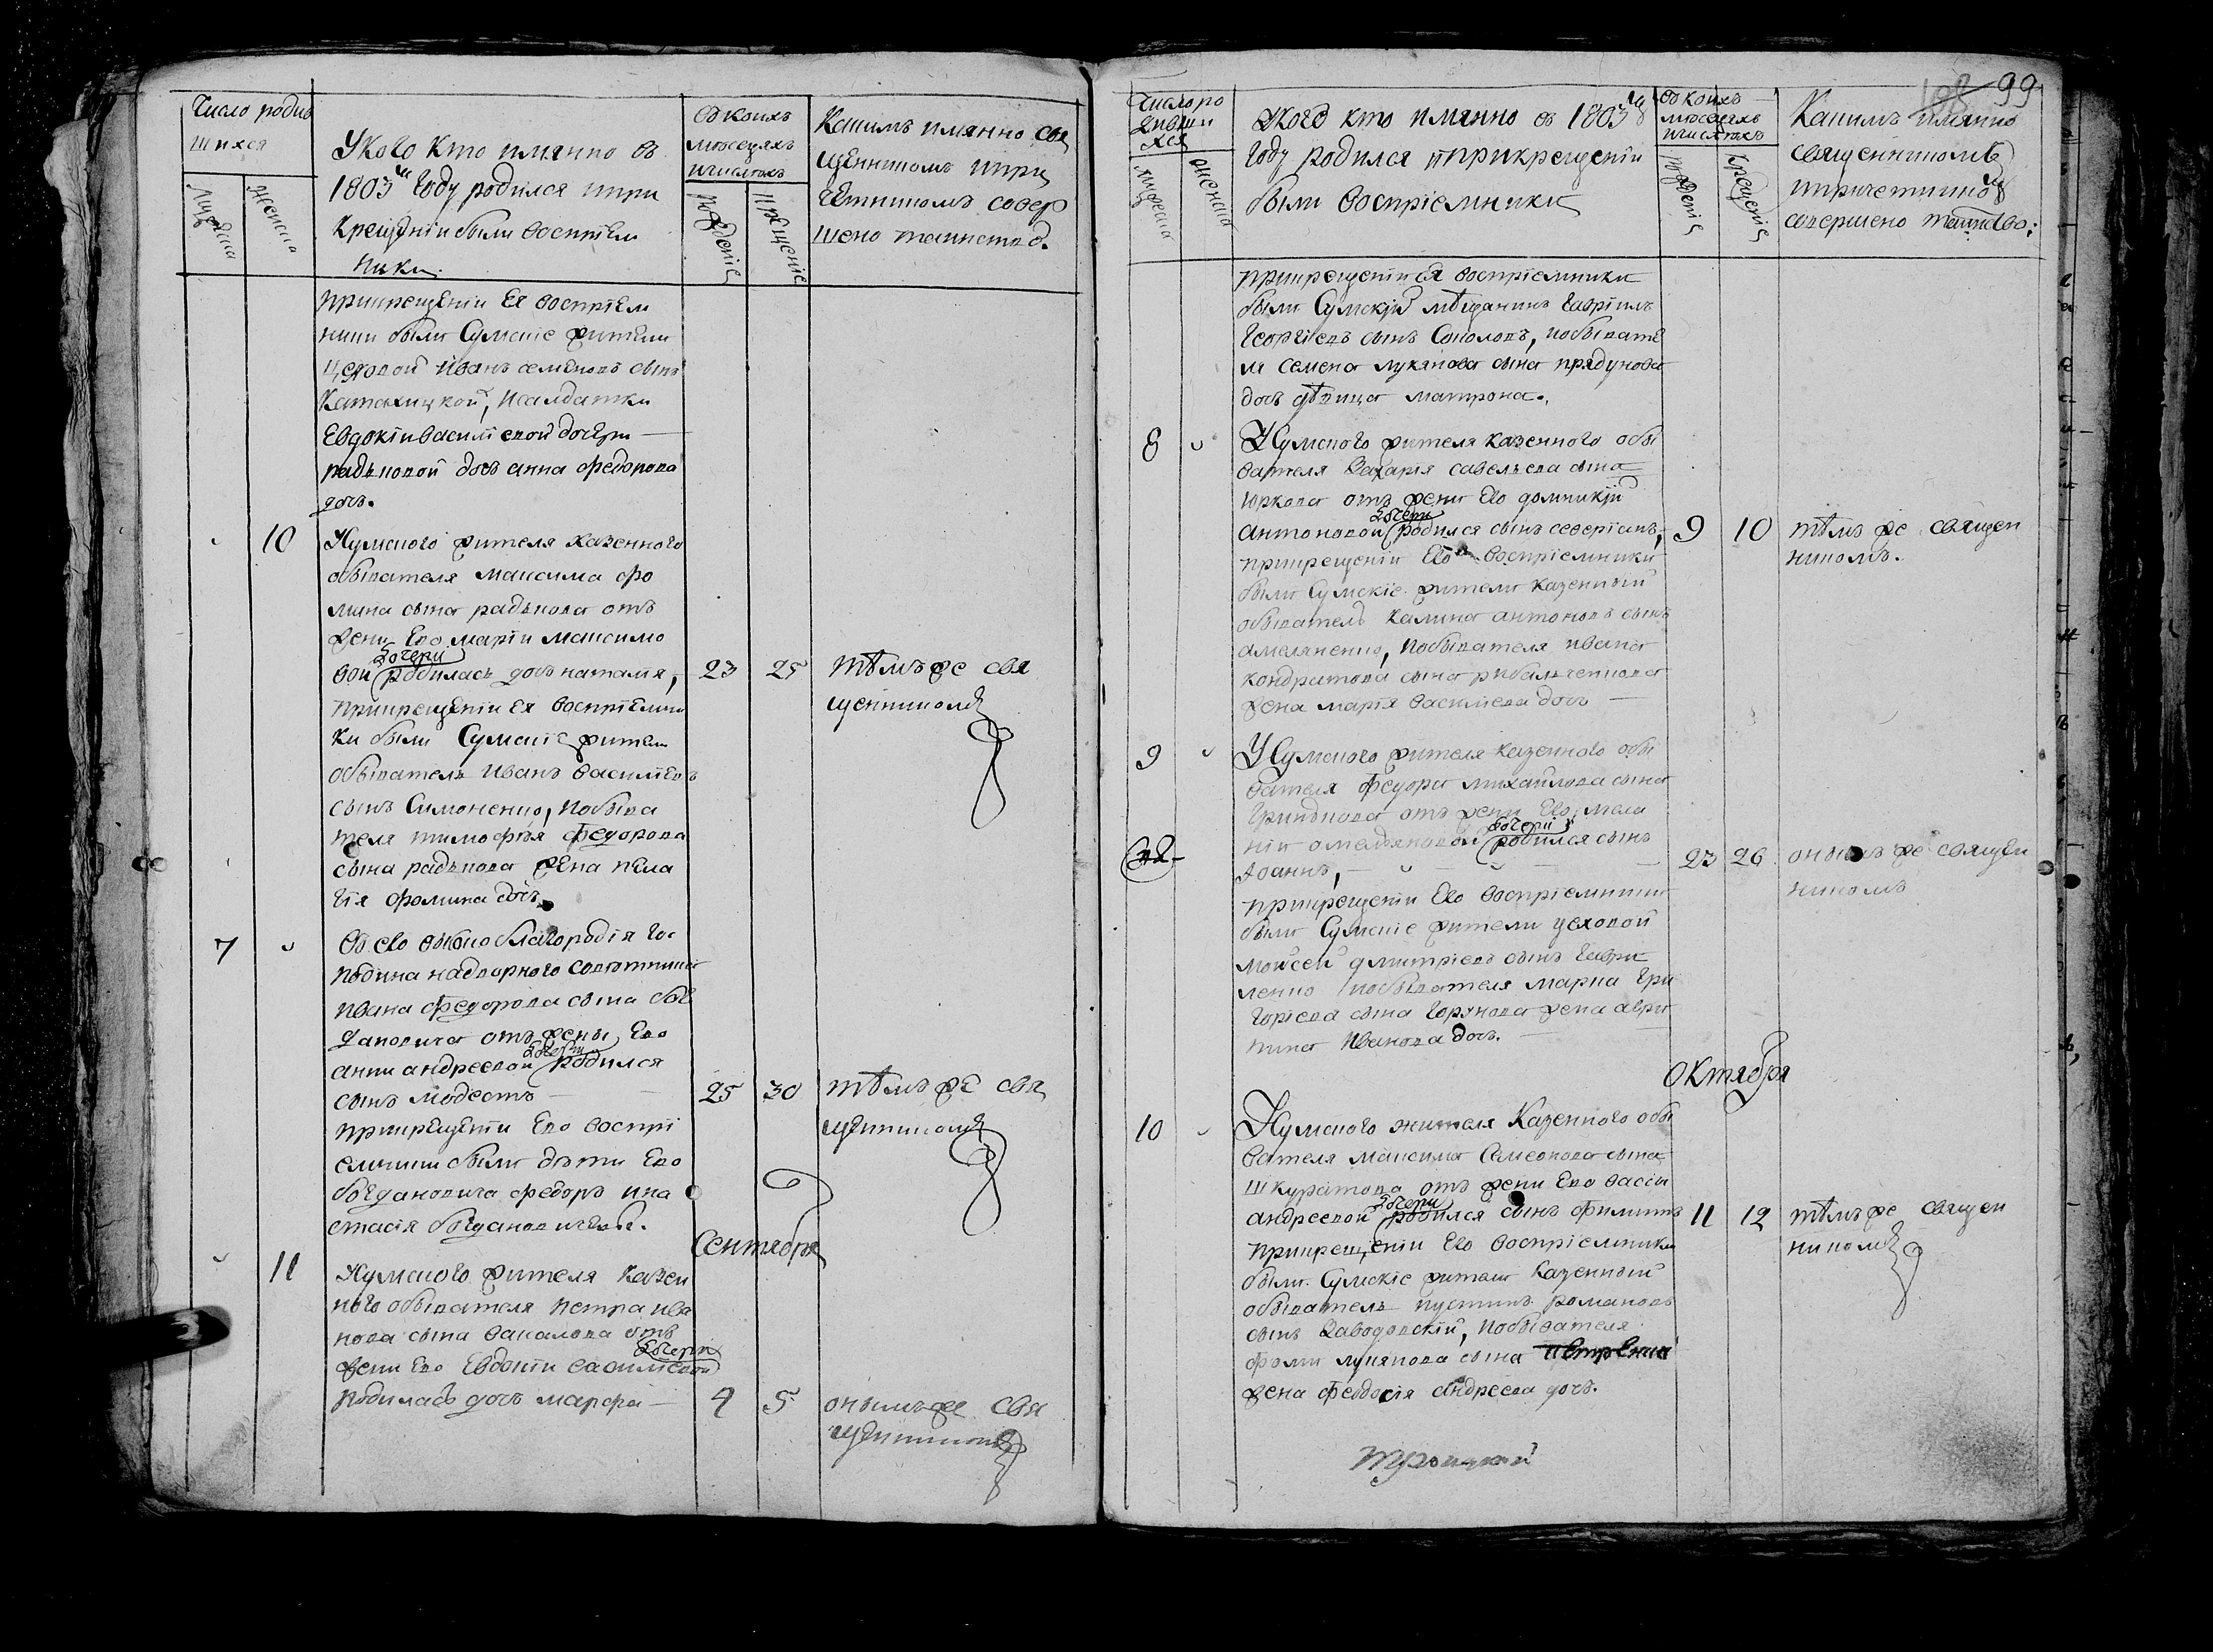 Число родив
шихся
Мужеска
Женска
У кого кто имянно въ
1803м году родился ипри
крещении были восприем
ники.
в коихъ
месецахъ
ичислахъ
рождение
крещение
Какимъ имянно свя
щенникомъ ипри
четникомъ совер
шено таинство.
прикрещении Ея восприем
ники были Сумские жители
цеховой Иванъ семеновъ сынъ
исалдатки
Евдокии василиевой дочери
радьковой дочь анна федорова
дочь.
10
У Сумского жителя казенного
обывателя максима фо
мина сына радькова отъ
жени Его марии максимо
дочери
вой родилась дочь наталия,
23
25
темъ же свя
щенникомъ
прикрещении Ея восприемни
ки были Сумские жители
обыватель Иванъ василиевъ
сынъ Симоненко, иобыва
теля тимофея федорова
сына радькова жена пела
гия фомина дочь.
7
Въ его високоблагородия гос
подина надворного советника
ивана федорова сына бог
дановича отъ жены Его
дочери
анни андреевой родился
сынъ модестъ
25
30
темъ же свя
щенникомъ
прикрещении Его воспри
емники были дети Его
богдановича федоръ ина
стасия богдановичева.
Сентября
11
У Сумского жителя казен
ного обывателя петра ива
нова сына вакалова отъ
дочери
жени Его Евдокии василиевой
родилась дочь марфа
4
5
онымъ же свя
щенникомъ
108 99
Число ро
дивши
хся
мужеска
женска
У кого кто имянно въ 1803м
году родился иприкрещении
были восприемники
в коихъ
месецахъ
ичислахъ
рождение
крещение
Какимъ имянно
священникомъ
ипричетникомъ
совершено таинство:
прикрещении Ея восприемники
были Сумский мещанинъ гавриилъ
георгиевъ сынъ Соколовъ, иобывате
ля семена лукянова сына прядунова
дочь девица матрона.
8
У Сумского жителя казенного обы
вателя Захария савельева сына
юркова отъ жени Его домникии
дочери
антоновой родился сынъ севериянъ,
9
10
темъ же священ
никомъ.
прикрещении Его восприемники
были Сумские жители казенный
обыватель калина антоновъ сынъ
омеляненко, иобывателя ивана
кондратова сына рибальченкова
жена мария василиева дочь
9
У Сумского жителя казенного обы
вателя федора михайлова сына
гринькова отъ жени Его мела
дочери
нии омельяновой родился сынъ
иоаннъ,
23
26
онымъ же священ
никомъ
прикрещении Его восприемники
были Сумские жители цеховой
мойсей дмитриевъ сынъ гаври
ленко иобывателя марка гри
гориева сына горянова жена агри
пина Иванова дочь.
Октября
10
У Сумского жителя Казенного обы
вателя максима Симеонова сына
шкуратова отъ жени Его васси
дочери
андреевой родился сынъ филиппъ
11
12
темъ же священ
никомъ
прикрещении Его восприемники
были Сумские жители казенный
обыватель иустинъ романовъ
сынъ Заводовский, иобывателя
фоми лукянова сына петренка
жена феодосия андреева дочь.